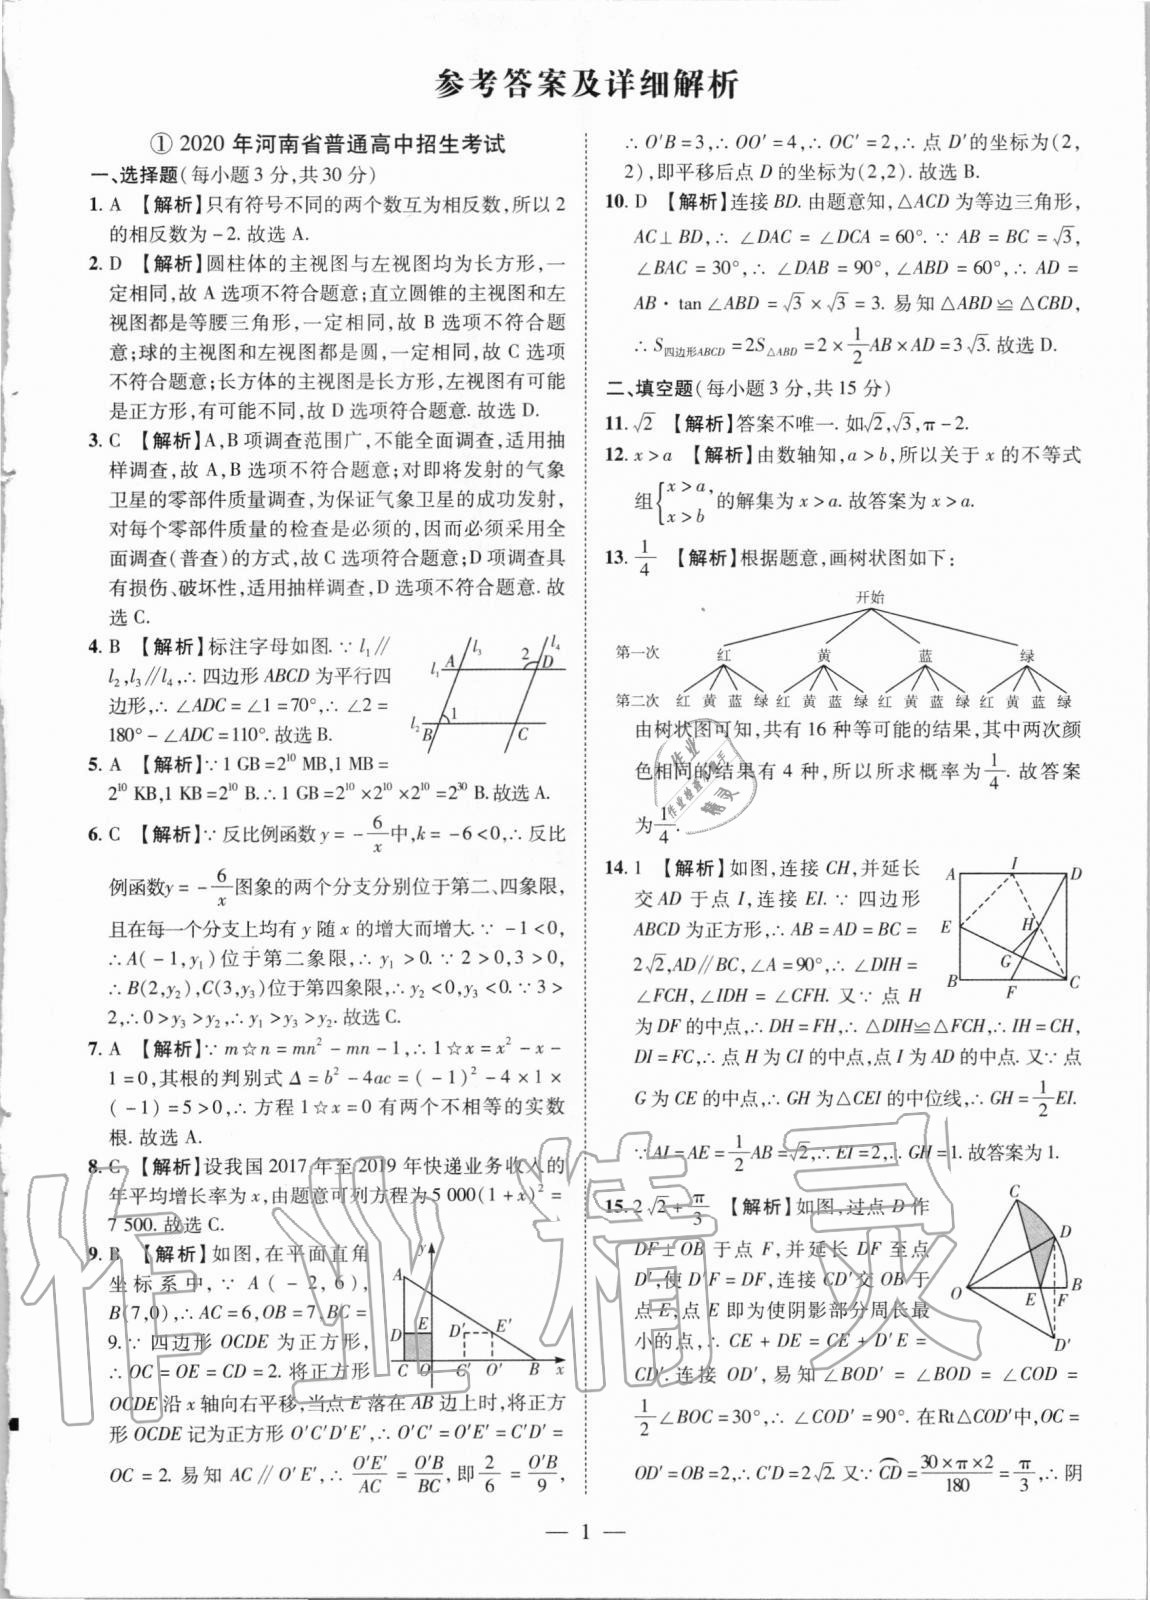 参考答案及详细解析
① 2020 年河南省普通高中招生考试
一、选择题(每小题 3 分,共 30 分)
1. A 【解析】只有符号不同的两个数互为相反数,所以 2
的相反数为 -2. 故选 A.
2. D 【解析】圆柱体的主视图与左视图均为长方形,一
定相同,故 A 选项不符合题意;直立圆锥的主视图和左
视图都是等腰三角形,一定相同,故 B 选项不符合题
意;球的主视图和左视图都是圆,一定相同,故 C 选项
不符合题意;长方体的主视图是长方形,左视图有可能
是正方形,有可能不同,故 D 选项符合题意. 故选 D.
3. C 【解析】A,B 项调查范围广,不能全面调查,适用抽
样调查,故 A,B 选项不符合题意;对即将发射的气象
卫星的零部件质量调查,为保证气象卫星的成功发射,
对每个零部件质量的检查是必须的,因而必须采用全
面调查(普查)的方式,故 C 选项符合题意;D 项调查具
有损伤、破坏性,适用抽样调查,D 选项不符合题意. 故
选 C.
4. B 【解析】标注字母如图. ∵ l₁∥
l₂,l₃∥l₄,∴ 四边形 ABCD 为平行四
边形,∴ ∠ADC=∠1=70°,∴ ∠2=
180°-∠ADC=110°. 故选 B.
l₁ A l₃ 2 D l₄
l₂ B 1 C
5. A 【解析】∵ 1 GB=2¹⁰ MB,1 MB=
2¹⁰ KB,1 KB=2¹⁰ B.∴ 1 GB=2¹⁰×2¹⁰×2¹⁰=2³⁰ B.故选 A.
6. C 【解析】∵ 反比例函数 y=-6/x 中,k=-6<0,∴ 反比
例函数y=-6/x 图象的两个分支分别位于第二、四象限,
且在每一个分支上均有 y 随 x 的增大而增大. ∵ -1<0,
∴A(-1,y₁)位于第二象限,∴ y₁>0.∵ 2>0,3>0,
∴ B(2,y₂),C(3,y₃)位于第四象限,∴ y₂<0,y₃<0.∵ 3>
2,∴ 0>y₃>y₂,∴ y₁>y₃>y₂. 故选 C.
7. A 【解析】∵ m☆n=mn²-mn-1,∴ 1☆x=x²-x-
1=0,其根的判别式 Δ=b²-4ac=(-1)²-4×1×
(-1)=5>0,∴ 方程 1☆x=0 有两个不相等的实数
根. 故选 A.
8. C 【解析】设我国 2017 年至 2019 年快递业务收入的
年平均增长率为 x,由题意可列方程为 5 000(1+x)²=
7 500. 故选 C.
9. B 【解析】如图,在平面直角
坐标系中,∵ A(-2,6),
B(7,0),∴ AC=6,OB=7,BC=
9.∵ 四边形 OCDE 为正方形,
∴ OC=OE=CD=2. 将正方形
y A D E D′ E′ C O C′ O′ B x
OCDE 沿 x 轴向右平移,当点 E 落在 AB 边上时,将正方
形 OCDE 记为正方形 O′C′D′E′,∴ O′C′=O′E′=C′D′=
OC=2. 易知 AC∥O′E′,∴ O′E′/AC=O′B/BC,即 2/6=O′B/9,
∴ O′B=3,∴ OO′=4,∴ OC′=2,∴ 点 D′的坐标为(2,
2),即平移后点 D 的坐标为(2,2). 故选 B.
10. D 【解析】连接 BD. 由题意知,△ACD 为等边三角形,
AC⊥BD,∴ ∠DAC=∠DCA=60°. ∵ AB=BC=√3,
∠BAC=30°,∴ ∠DAB=90°,∠ABD=60°,∴ AD=
AB·tan∠ABD=√3×√3=3. 易知△ABD≌△CBD,
∴ S四边形ABCD=2S△ABD=2×1/2AB×AD=3√3. 故选 D.
二、填空题(每小题 3 分,共 15 分)
11. √2 【解析】答案不唯一. 如√2,√3,π-2.
12. x>a 【解析】由数轴知,a>b,所以关于 x 的不等式
组{x>a,x>b 的解集为 x>a. 故答案为 x>a.
13. 1/4 【解析】根据题意,画树状图如下:
开始
第一次 红 黄 蓝 绿
第二次 红 黄 蓝 绿 红 黄 蓝 绿 红 黄 蓝 绿 红 黄 蓝 绿
由树状图可知,共有 16 种等可能的结果,其中两次颜
色相同的结果有 4 种,所以所求概率为 1/4. 故答案
为 1/4.
14. 1 【解析】如图,连接 CH,并延长
交 AD 于点 I,连接 EI. ∵ 四边形
ABCD 为正方形,∴ AB=AD=BC=
2√2,AD∥BC,∠A=90°,∴ ∠DIH=
∠FCH,∠IDH=∠CFH. 又∵ 点 H
A I D E H G B F C
为 DF 的中点,∴ DH=FH,∴ △DIH≌△FCH,∴ IH=CH,
DI=FC,∴ 点 H 为 CI 的中点,点 I 为 AD 的中点. 又∵ 点
G 为 CE 的中点,∴ GH 为△CEI 的中位线,∴ GH=1/2EI.
∵ AI=AE=1/2AB=√2,∴ EI=2,∴ GH=1. 故答案为 1.
15. 2√2+π/3 【解析】如图,过点 D 作
DF⊥OB 于点 F,并延长 DF 至点
D′,使 D′F=DF,连接 CD′交 OB 于
点 E,点 E 即为使阴影部分周长最
小的点,∴ CE+DE=CE+D′E=
C D O E F B D′
CD′. 连接 OD′,易知∠BOD′=∠BOD=∠COD=
1/2∠BOC=30°,∴ ∠COD′=90°. 在Rt△COD′中,OC=
OD′=OB=2,∴ C′D=2√2. 又∵ CD⌒=30×π×2/180=π/3,∴ 阴
— 1 —
作业精灵
作业
作业检查小助手
精灵